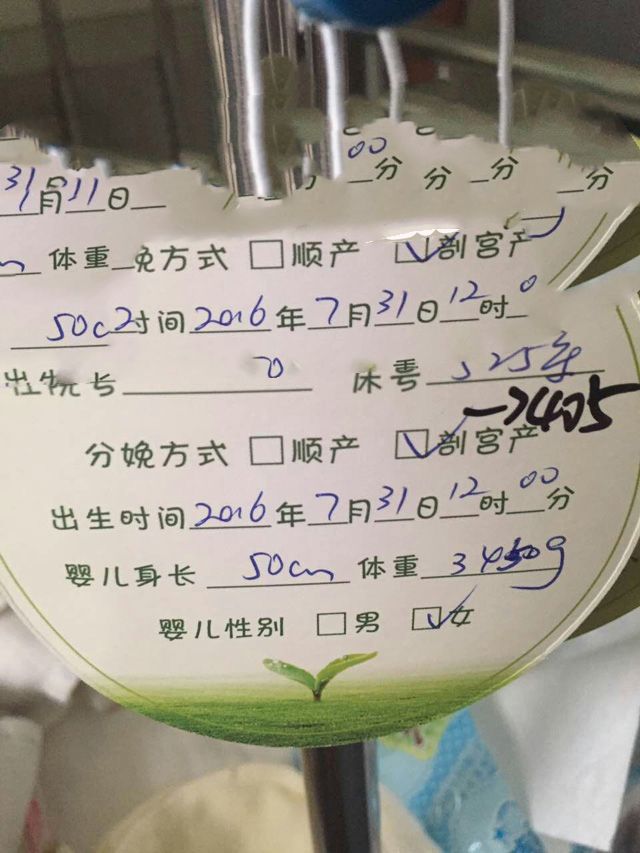 00分 分 分 分
31月11日
体重 免方式 □ 顺产 ☑ 剖宫产
50c 时间 2016年7月31日12时0
床号 325条
→405
分娩方式 □ 顺产 ☑ 剖宫产
出生时间 2016年7月31日12时00分
婴儿身长 50cm 体重 3450g
婴儿性别 □ 男 ☑ 女